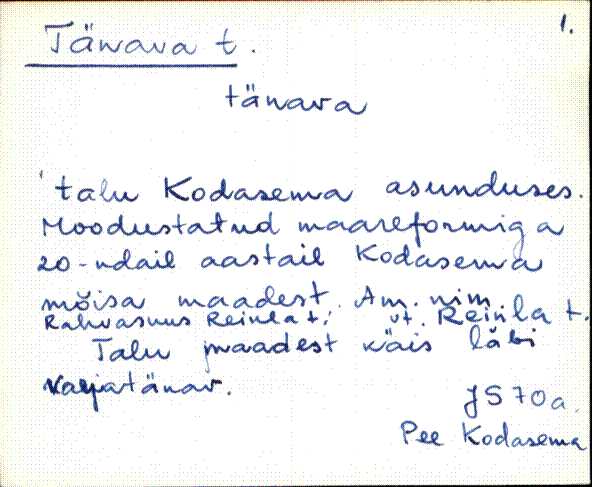 1.
Tänava t.
tänava
'talu Kodasema asunduses.
Moodustatud maareformiga
20-ndail aastail Kodasema
mõisa maadest. Am. nim.
Rahvasuus Reinla t. vt. Reinla t.
Talu maadest käis läbi
karjatänav.
JS 70a.
Pee Kodasema